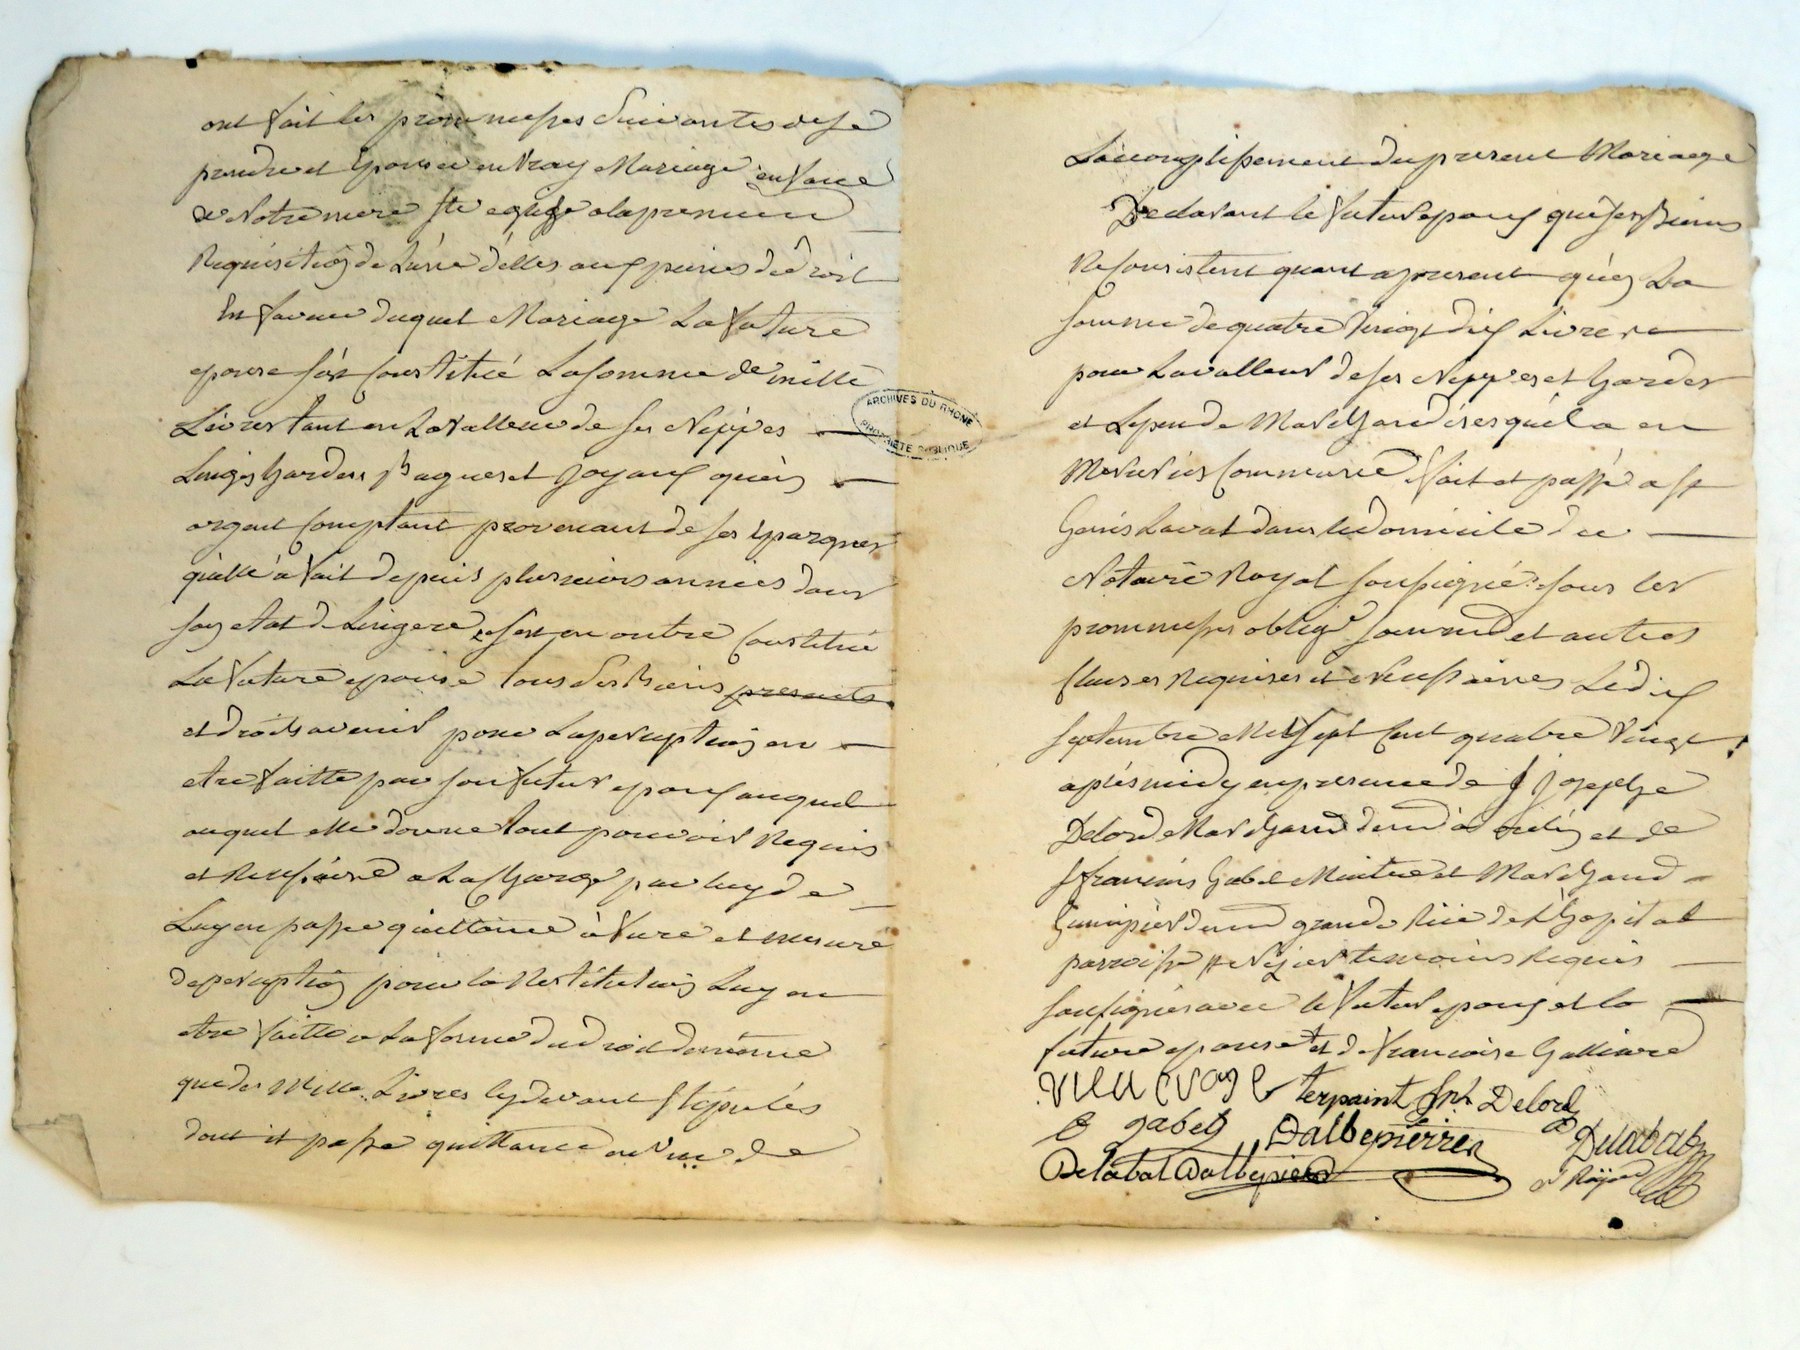 ont fait les prommesses suivantes de se
prendre et Epouser en vray Mariage en face
de Notre mere Ste eglise a la premiere
Requisition de L'une d'elles aux peines de Droit
En faveur duquel Mariage La future
epouse s'est Constitué La somme de mille
Livres tant en La valleur de ses Nippes
Linges hardes Bagues et Joyaux qu'en
argent Comptant provenant de ses Epargnes
qu'elle a fait depuis plusieurs années dans
son etat de Lingere, s'est en outre Constitué
La future epouse tous ses Biens presents
et droits avenir pour La perception en
etre faitte par son futur epoux auquel
auquel elle donne tout pouvoir Requis
et Necessaire a La Charge par luy de
Luy en passer quittance a fure et mesure
de perception pour la Restitution Luy en
etre faitte a La forme du droit de meme
que des Mille Livres cy devant stipulés
dont il passe quittance au vue de
ARCHIVES DU RHONE
PROPRIETE PUBLIQUE
L'accomplissement du present Mariage
Declarant le futur epoux que ses Biens
Ne Consistent quant a present qu'en La
somme de quatre vingt dix Livres
pour La valleur de ses Nippes et hardes
et Le peu de Marchandises qu'il a en
Commerce fait et passé a St
Genis Laval dans le domicile du
Notaire Royal soussigné: sous les
prommesses oblig.
Clauses Requises et Necessaires Le dix
septembre Mil sept Cent quatre vingt
après midy en presence de s. Joseph
Delord Marchand et de
s. francois Gabet Maitre et Marchand
Guimpier grande Rüe de L'hopital
parroisse St Nizier temoins Requis
soussignés avec le futur epoux et la
future epouse et de francoise Galliard
terpaint Jph Delord
f gabet Dalbepierre Delabat
Delabat Dalbepierre